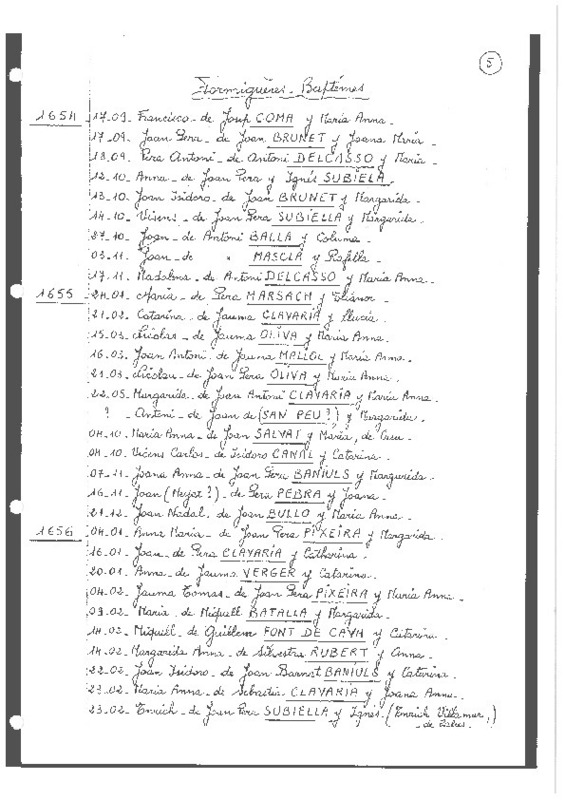 5
Formiguères - Baptêmes
1654 17-09. Francisco - de Josep COMA y Maria Anna -
17-09. Joan Pera - de Joan BRUNET y Joana Maria -
18.09. Pera Antoni - de Antoni DELCASSO y Maria -
12.10 Anna - de Joan Pera y Ignés SUBIELA
13.10. Joan Isidoro - de Joan BRUNET y Margarida.
14-10 Vicens - de Joan Pera SUBIELLA y Margarida.
27-10. Joan - de Antoni BALLA y Columa -
03.11. Joan - de " MASCLA y Rafella -
17.11. Madalena - de Antoni DELCASSO y Maria Anna -
1655 24.01. Maria - de Pera MARSACH y Eliánor -
21.02. Catarina - de Jauma CLAVARIA y Lluzia.
15.03. Nicolas - de Jauma OLIVA y Maria Anna.
16.03. Joan Antoni. de Jauma MALLOL y Maria Anna.
21.03. Nicolau - de Joan Pera OLIVA y Maria Anna.
22.05. Margarida - de Joan Antoni CLAVARIA y Maria Anna -
? - Antoni - de Joan de (SAN PEU ?) y Margarida.
04.10. Maria Anna - de Joan SALVAT y Maria, de
04.10. Vicens Carlos - de Isidoro CANAL y Catarina.
07-11. Joana Anna - de Joan Pera BANIULS y Margarida.
16.11. Joan (Meyar ?) - de Pera PEBRA y Joana.
21.12. Joan Nadal. de Joan BULLO y Maria Anna -
1656 04.01. Anna Maria - de Joan Pera PIXEIRA y Margarida.
16.01. Joan - de Pera CLAVARIA y Catharina.
20.01. Anna - de Jauma VERGER y Catarina.
04.02. Jauma Tomas - de Joan Pera PIXEIRA y Maria Anna -
09.02. Maria. de Miquell BATALLA y Margarida.
14.02. Miquell - de Guillem FONT DE CAVA y Catarina.
14.02. Margarida Anna - de Silvestra RUBERT y Anna.
22.02. Joan Isidoro - de Joan Barnat BANIULS y Catarina.
23.02. Maria Anna - de Sebastia CLAVARIA y Joana Anna -
23.02. Enrich - de Joan Pera SUBIELLA y Ignés. (Enrich Villamur,)